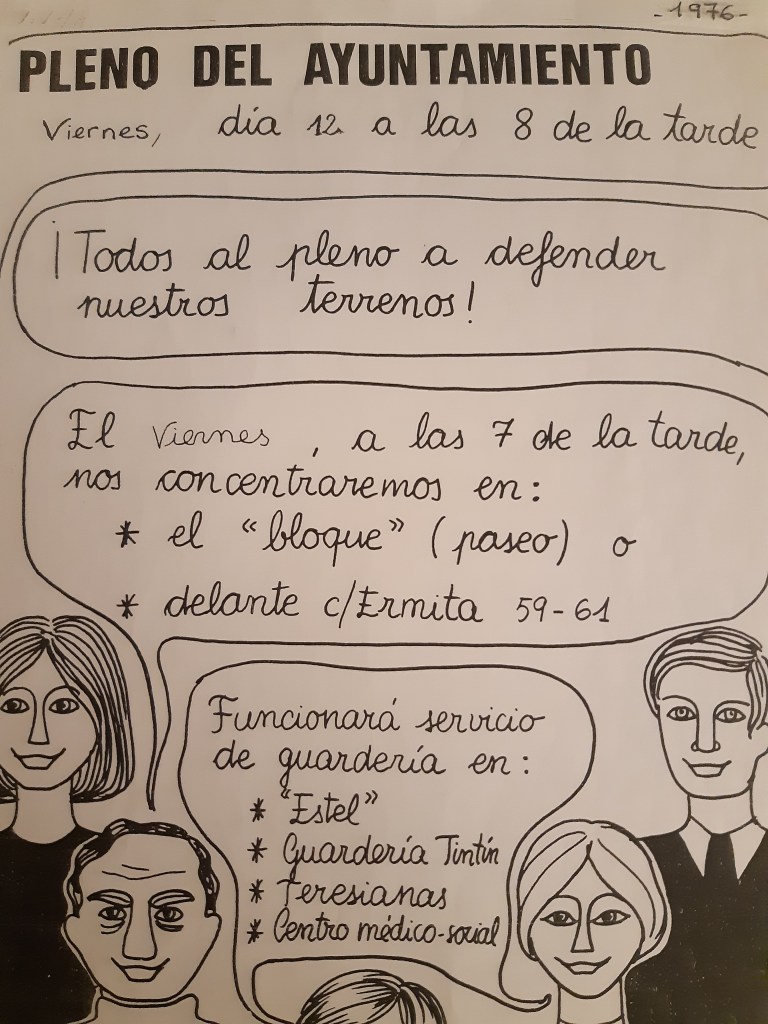 -1976-
PLENO DEL AYUNTAMIENTO
Viernes, día 12 a las 8 de la tarde
¡Todos al pleno a defender
nuestros terrenos!
El Viernes, a las 7 de la tarde,
nos concentraremos en:
* el "bloque" (paseo) o
* delante c/Ermita 59-61
Funcionará servicio
de guardería en:
* "Estel"
* Guardería Tintín
* Teresianas
* Centro médico-social